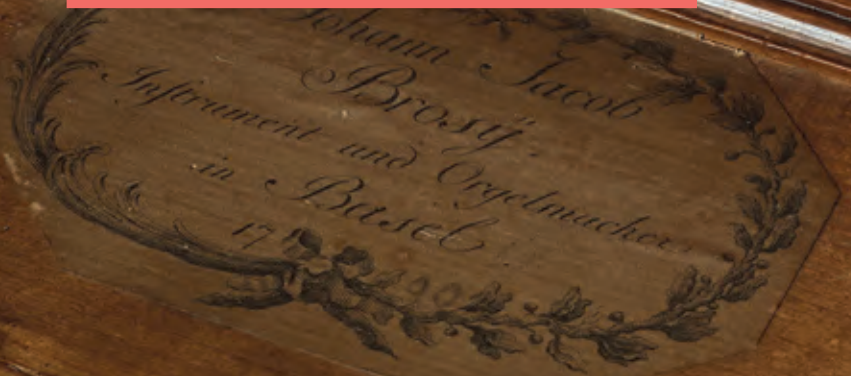 Johann Jacob
Brosÿ.
Instrument und Orgelmacher
in Basel
17